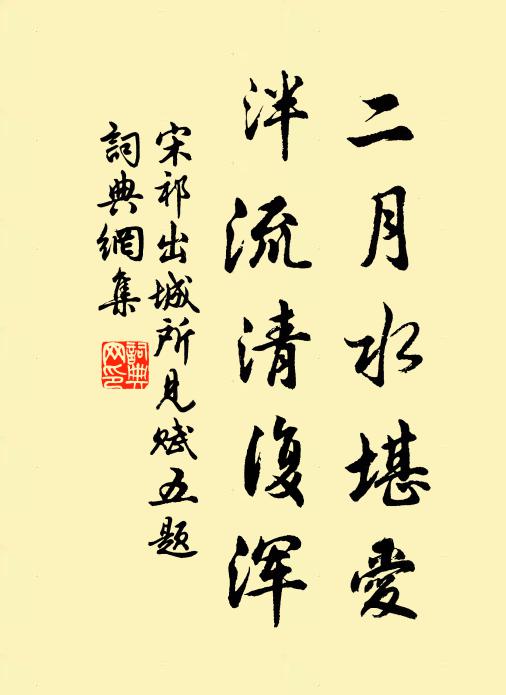 二月水堪愛
泮流清復浑
宋祁出城所見赋五题
詞典網集
詞典網印